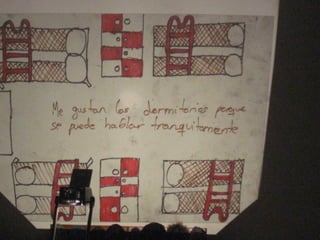 Me gustan los dormitorios porque
se puede hablar tranquilamente